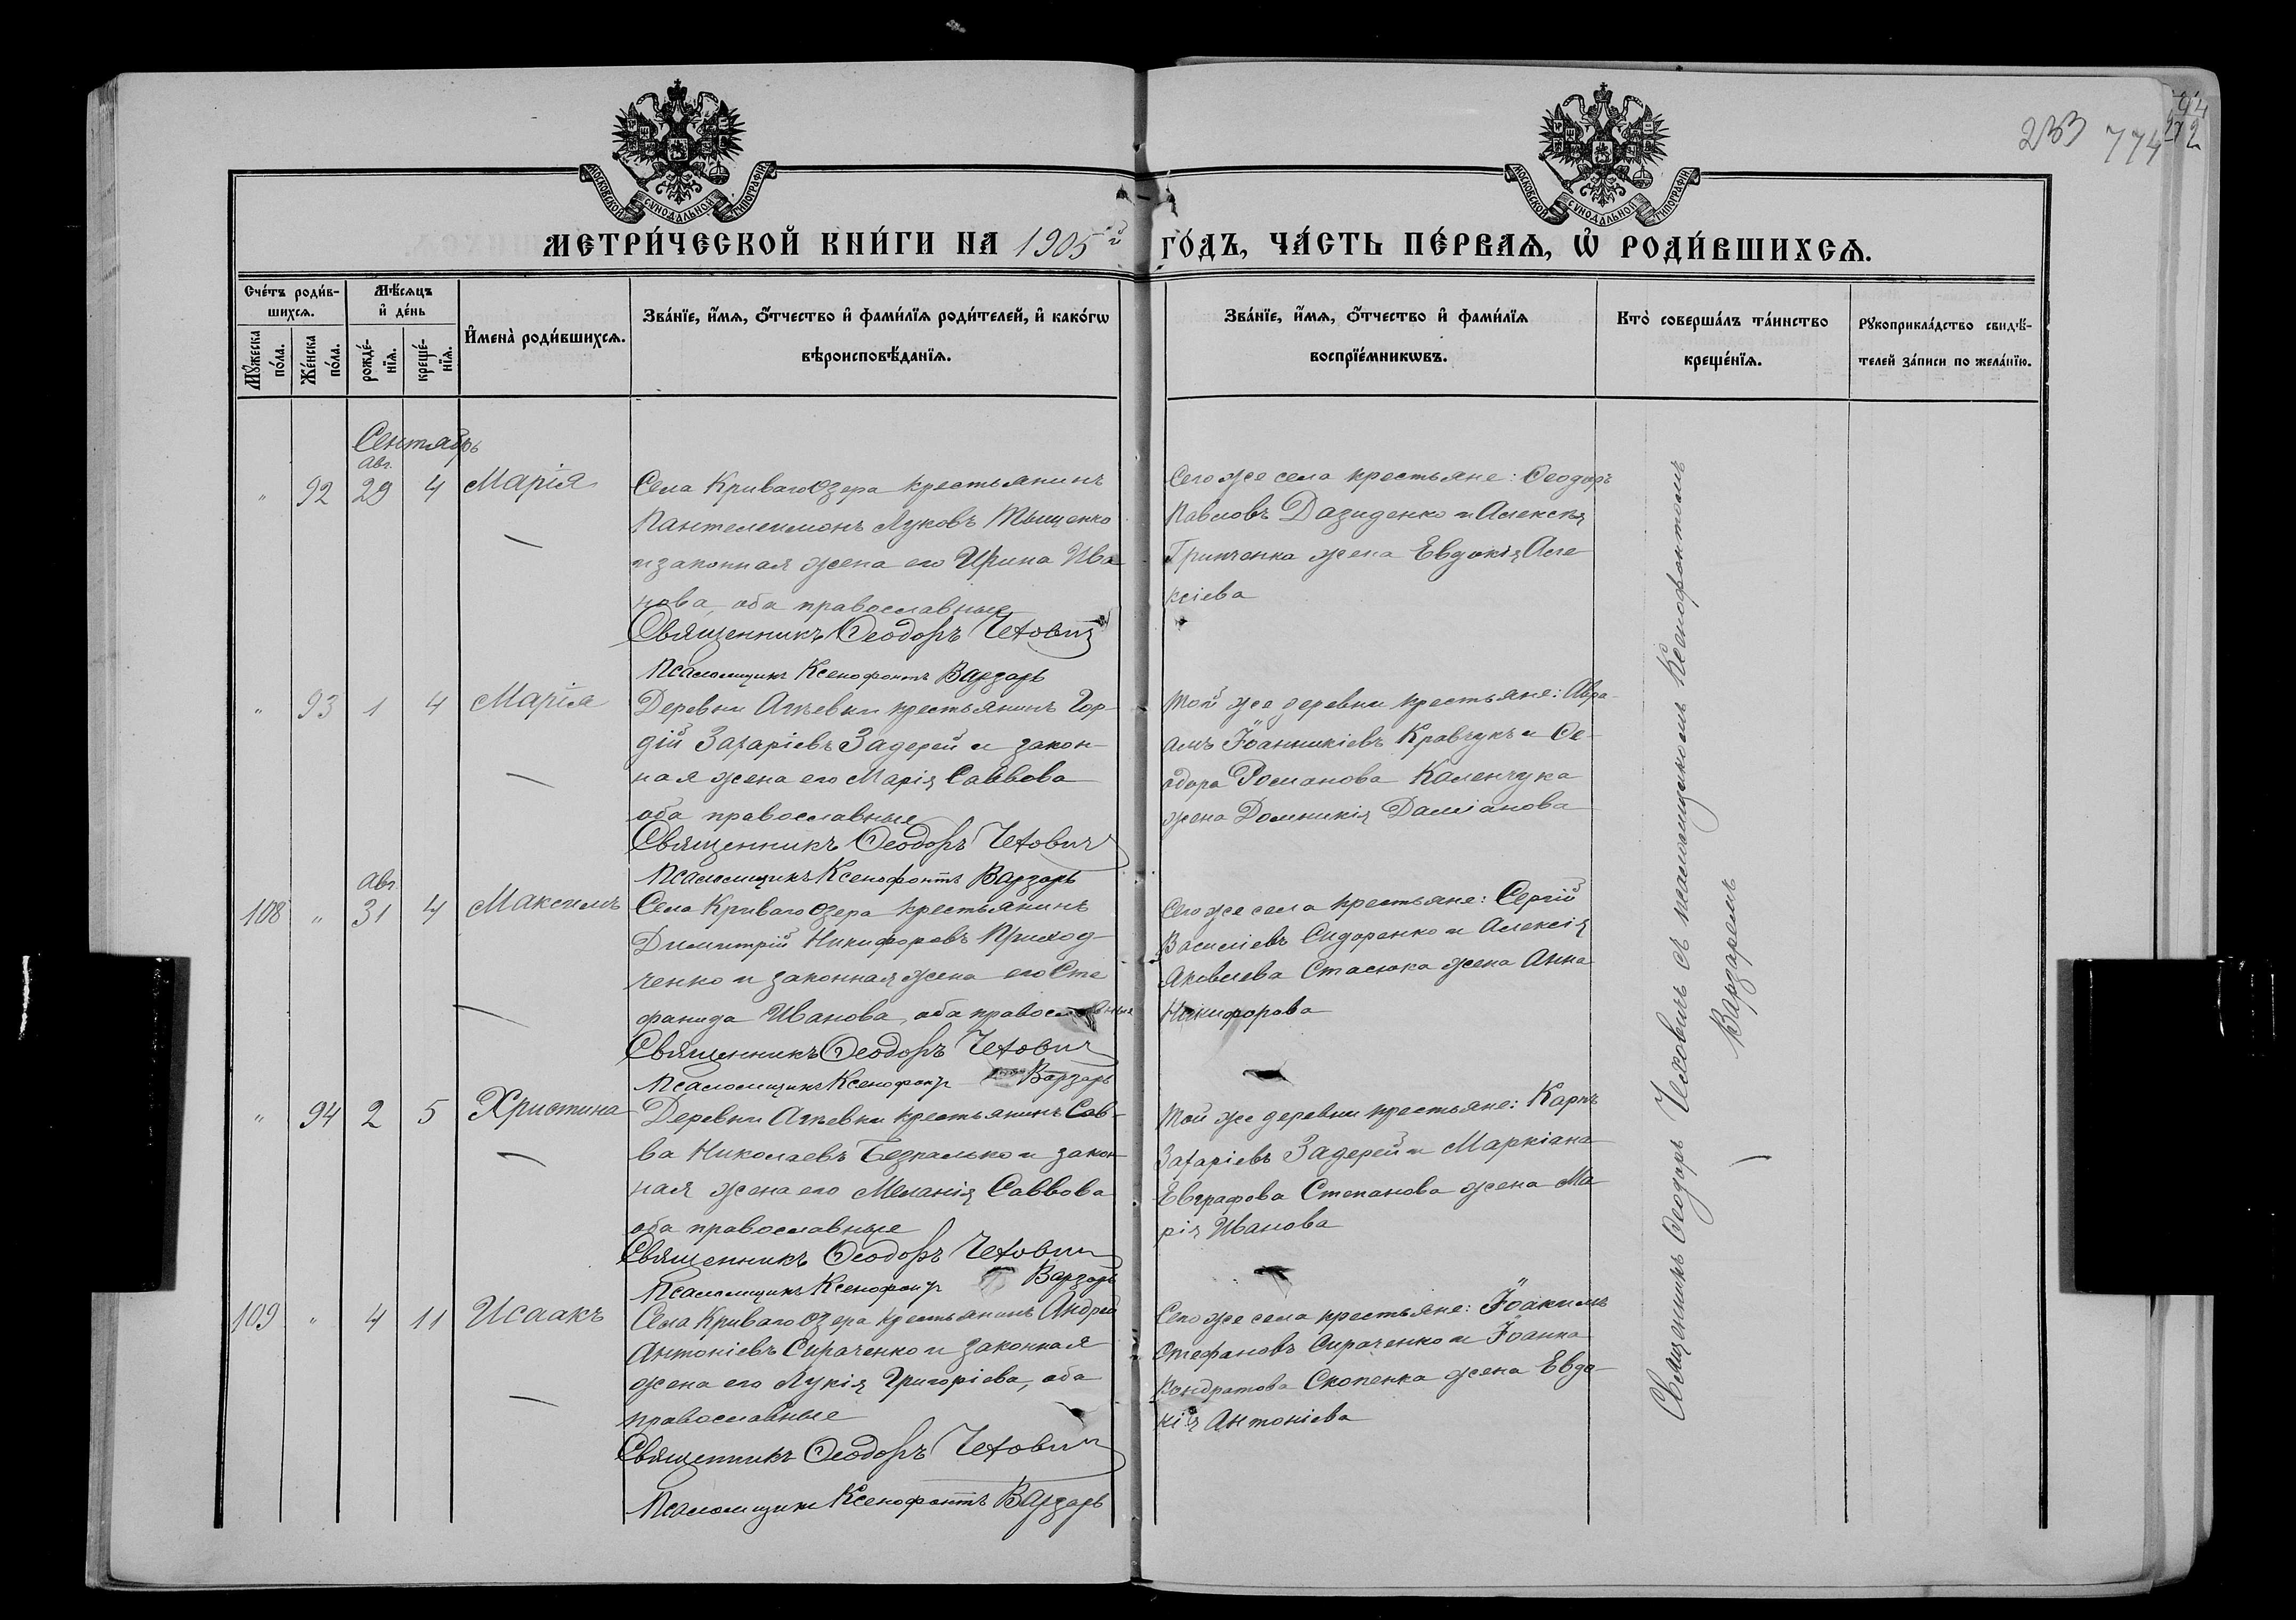 233 774
МОСКОВСКОЙ СѴНОДАЛЬНОЙ ТИПОГРАФІИ
МОСКОВСКОЙ СѴНОДАЛЬНОЙ ТИПОГРАФІИ
МЕТРИ́ЧЕСКОЙ КНИ́ГИ НА 1905й ГО́ДЪ, ЧА́СТЬ ПЕ́РВАѦ, Ѡ҆ РОДИ́ВШИХСѦ.
Сче́тъ роди́в-
шихсѧ.
Мꙋ́жеска по́ла.
Же́нска по́ла.
Мѣ́сѧцъ
и҆ де́нь
рожде́-
нїѧ.
креще́-
нїѧ.
И҆мена̀ роди́вшихсѧ.
Зва́нїе, и҆́мѧ, ѻ҆́тчество и҆ фами́лїѧ роди́телей, и҆ како́гѡ
вѣроисповѣ́данїѧ.
Зва́нїе, и҆́мѧ, ѻ҆́тчество и҆ фами́лїѧ
воспрїе́мникѡвъ.
Кто̀ соверша́лъ та́инство
креще́нїѧ.
Рꙋкоприкла́дство свидѣ́-
телей за́писи по жела́нїю.
Сентябрь
Авг.
" 92 29 4 Марія
Села Криваго Озера крестьянинъ
Пантелеимонъ Луковъ Тыщенко
и законная жена его Ирина Ива
нова, оба православные
Священникъ Ѳеодоръ Чехович
Псаломщикъ Ксенофонтъ Варзарь
Сего же села крестьяне: Ѳеодоръ
Павловъ Дазиденко и Алексѣя
Гринченка жена Евдокія Але
ксіева
" 93 1 4 Марія
Деревни Агѣевки крестьянинъ Гор-
дій Захаріевъ Задерей и закон-
ная жена его Марія Саввова
оба православные
Священникъ Ѳеодоръ Чехович
Псаломщикъ Ксенофонтъ Варзарь
Той же деревни крестьяне: Авра-
амъ Іоанникіевъ Кравчукъ и Ѳе-
одора Романова Каленчука
жена Домникія Даміанова
Авг
108 " 31 4 Максимъ
Села Криваго Озера крестьянинъ
Димитрій Никифоровъ Приход-
ченко и законная жена его Сте
фанида Иванова, оба православные
Священникъ Ѳеодоръ Чехович
Псаломщикъ Ксенофонтъ Варзарь
Сего же села крестьяне: Сергій
Василіевъ Сидоренко и Алексія
Яковлева Стасюка жена Анна
Никифорова
" 94 2 5 Христина
Деревни Агѣевки крестьянинъ Сав-
ва Николаевъ Безпалько и закон-
ная жена его Меланія Саввова
оба православные
Священникъ Ѳеодоръ Чехович
Псаломщикъ Ксенофонтъ Варзарь
Той же деревни крестьяне: Карпъ
Захаріевъ Задерей и Маркіана
Евграфова Степанова жена Ма
рія Иванова
109 " 4 11 Исаакъ
Села Криваго Озера крестьянинъ Андрей
Антоніевъ Сираченко и законная
жена его Лукія Григоріева, оба
православные
Священникъ Ѳеодоръ Чехович
Псаломщикъ Ксенофонтъ Варзарь
Сего же села крестьяне: Іоакимъ
Стефановъ Сираченко и Іоанна
Кондратова Скопенка жена Евдо-
кія Антоніева
Священникъ Ѳеодоръ Чеховичъ съ псаломщикомъ Ксенофонтомъ
Варзаремъ